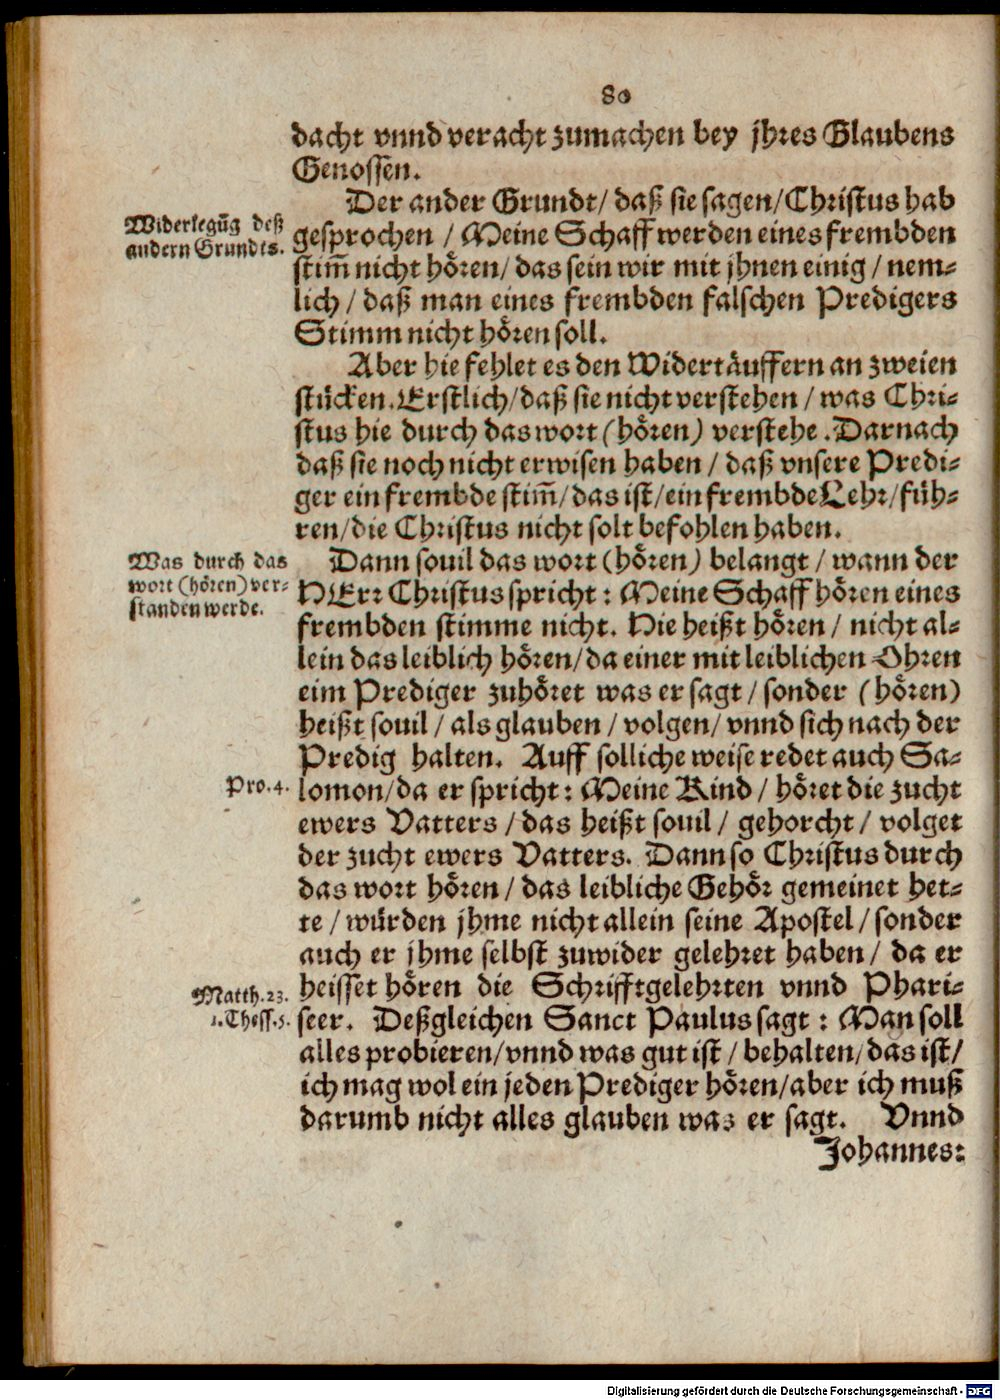 80
dacht vnnd veracht zumachen bey jhres Glaubens
Genossen.
Widerlegūg deß
andern Grundts.
Der ander Grundt/ daß sie sagen/Christus hab
gesprochen / Meine Schaff werden eines frembden
stim̄ nicht hören/ das sein wir mit jhnen einig / nem-
lich / daß man eines frembden falschen Predigers
Stimm nicht hören soll.
Aber hie fehlet es den Widertäuffern an zweien
stücken. Erstlich/daß sie nicht verstehen / was Chri-
stus hie durch das wort (hören) verstehe. Darnach
daß sie noch nicht erwisen haben / daß vnsere Predi-
ger ein frembde stim̄/ das ist/ ein frembde Lehr/ füh-
ren/die Christus nicht solt befohlen haben.
Was durch das
wort (hören) ver-
standen werde.
Dann souil das wort (hören) belangt / wann der
HErr Christus spricht : Meine Schaff hören eines
frembden stimme nicht. Hie heißt hören / nicht al-
lein das leiblich hören/ da einer mit leiblichen Ohren
eim Prediger zuhöret was er sagt / sonder (hören)
heißt souil / als glauben / volgen/ vnnd sich nach der
Predig halten. Auff solliche weise redet auch Sa-
Pro.4.
lomon/da er spricht : Meine Kind / höret die zucht
ewers Vatters / das heißt souil / gehorcht / volget
der zucht ewers Vatters. Dann so Christus durch
das wort hören / das leibliche Gehör gemeinet het-
te / würden jhme nicht allein seine Apostel / sonder
auch er jhme selbst zuwider gelehret haben / da er
Matth.23.
1.Thess.5.
heisset hören die Schrifftgelehrten vnnd Phari-
seer. Deßgleichen Sanct Paulus sagt : Man soll
alles probieren/vnnd was gut ist / behalten/ das ist/
ich mag wol ein jeden Prediger hören/aber ich muß
darumb nicht alles glauben was er sagt. Vnnd
Johannes:
Digitalisierung gefördert durch die Deutsche Forschungsgemeinschaft - DFG